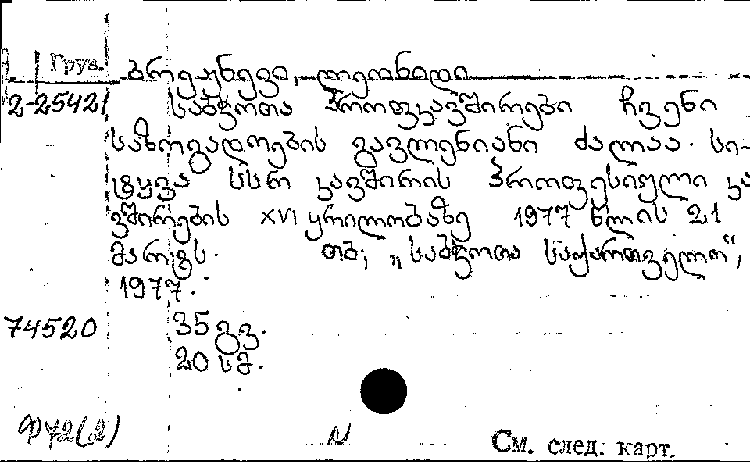 Груз.
ბრეჟნევი, ლეონიდი
2-25421 საბჭოთა პროფკავშირები ჩვენი
საზოგადოების გავლენიანი ძალაა. სი-
ტყვა სსრ კავშირის პროფესიული კა
ვშირების XVI ყრილობაზე 1977 წლის 21
მარტს. თბ., „საბჭოთა საქართველო“,
1977.
74520 35 გვ.
20 სმ.
Ф72(2) N См. след. карт.